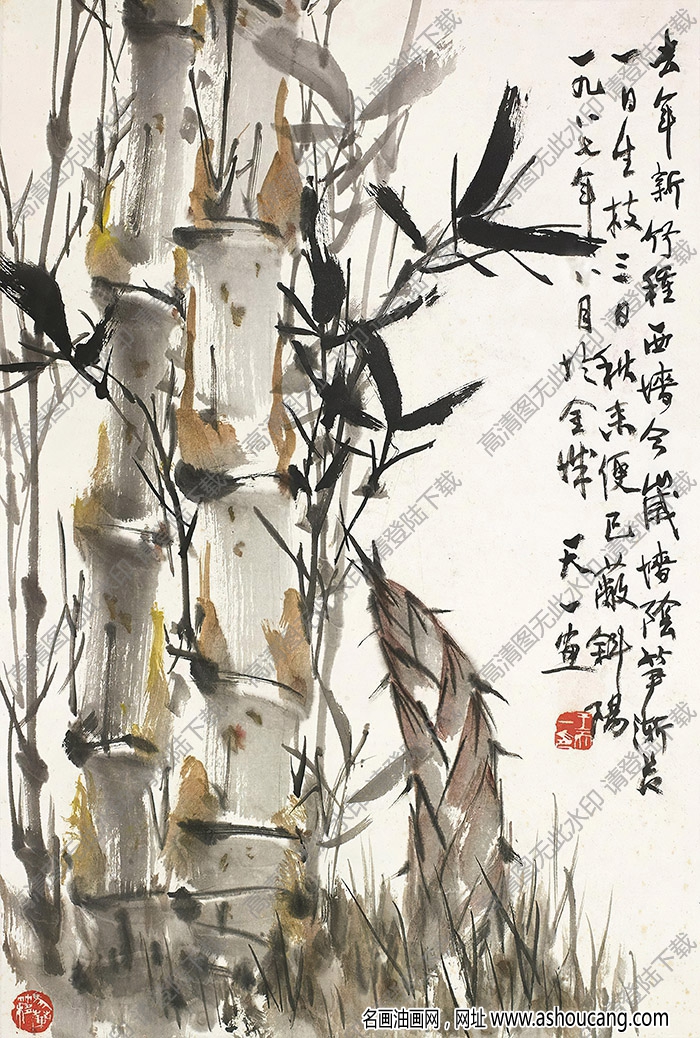 去年新竹種西墙今歲墙陰笋漸長
一日生枝三日秋来便已蔽斜陽
一九八七年八月於金城 天一画
高清图无此水印 请登陆下载
名画油画网，网址 www.ashoucang.com